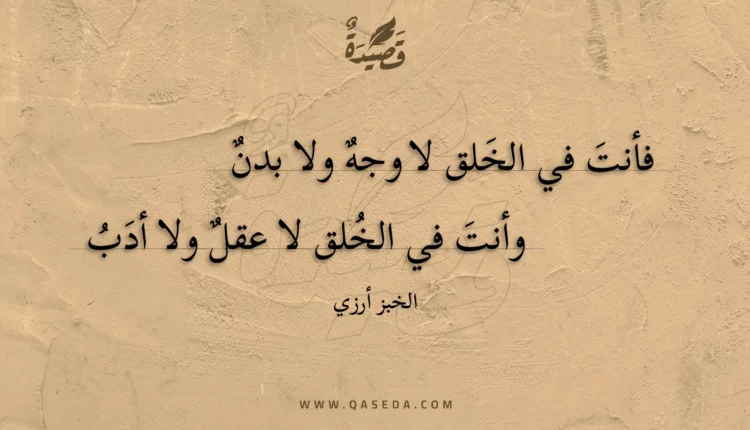 قَصِيْدَةٌ
فأنتَ في الخَلق لا وجهٌ ولا بدنٌ
وأنتَ في الخُلق لا عقلٌ ولا أدَبُ
الخبز أرزي
WWW.QASEDA.COM